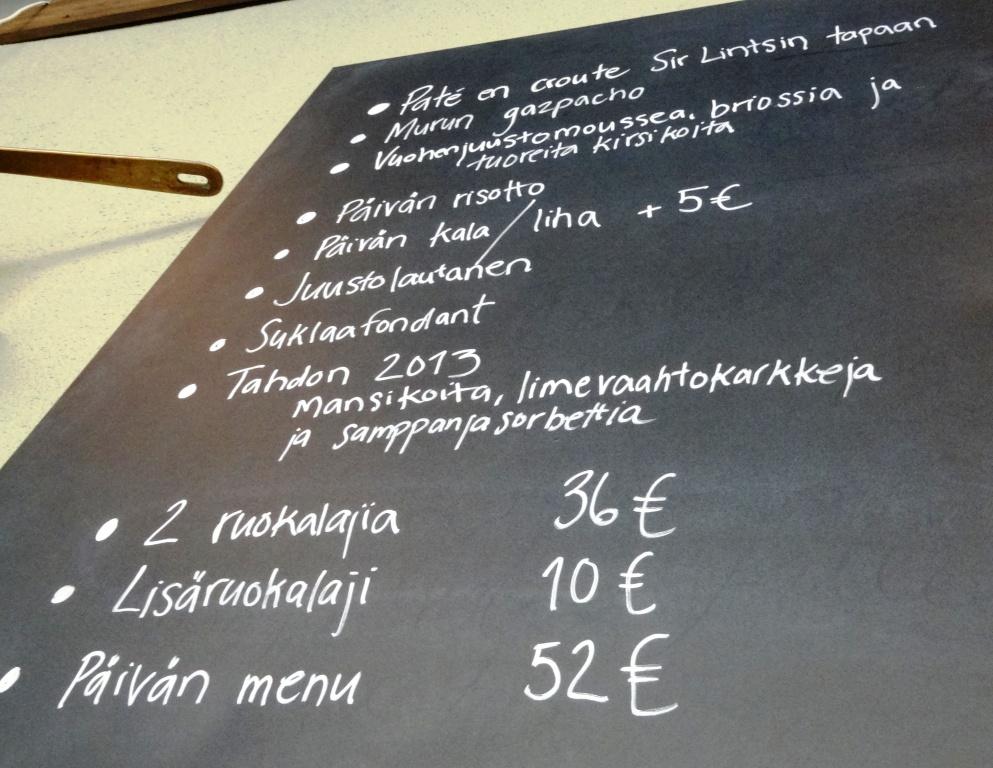 • Paté en croute Sir Lintsin tapaan
• Murun gazpacho
• Vuohenjuustomoussea, briossia ja
tuoreita kirsikoita
• Päivän risotto
• Päivän kala / liha + 5€
• Juustolautanen
• Suklaafondant
• Tahdon 2013
mansikoita, limevaahtokarkkeja
ja samppanjasorbettia
• 2 ruokalajia 36€
• Lisäruokalaji 10€
• Päivän menu 52€